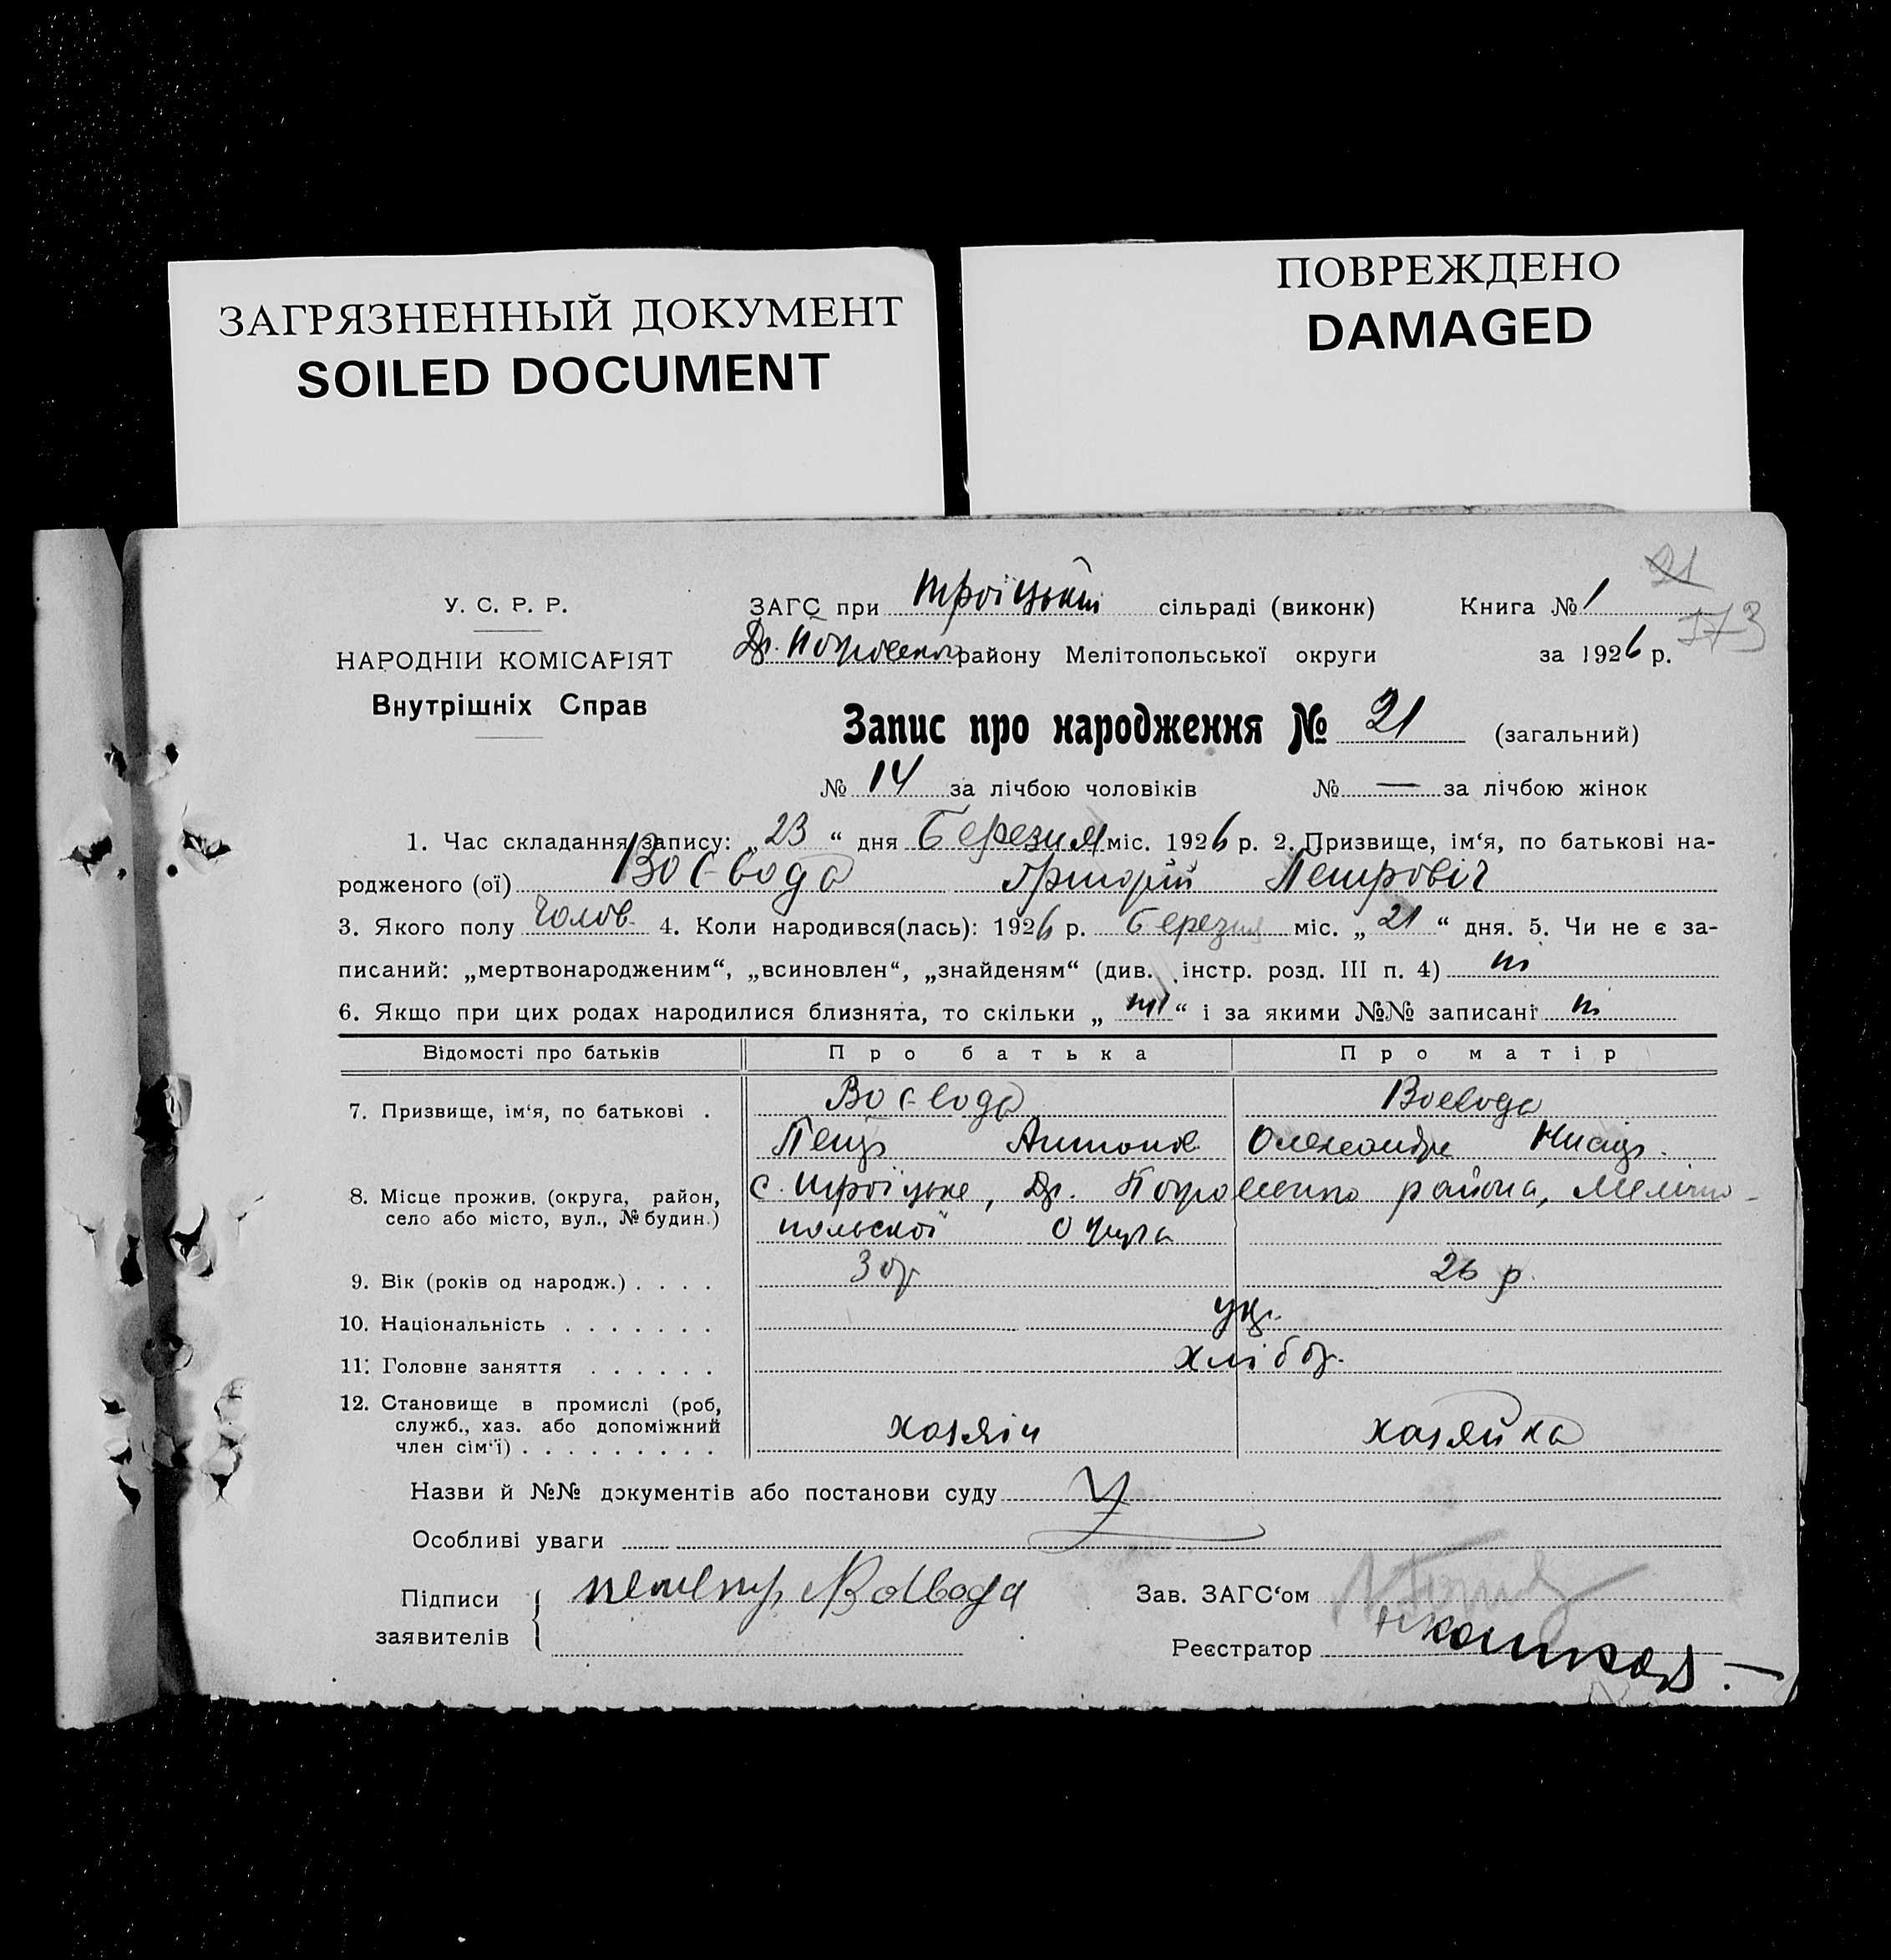 ЗАГРЯЗНЕННЫЙ ДОКУМЕНТ
SOILED DOCUMENT
ПОВРЕЖДЕНО
DAMAGED
21
173
У. С. Р. Р.
НАРОДНІЙ КОМІСАРІЯТ
Внутрішніх Справ
ЗАГС при Троїцькій сільраді (виконк) Книга № 1
району Мелітопольської округи за 1926 р.
Запис про народження № 21 (загальний)
№ 14 за лічбою чоловіків № — за лічбою жінок
1. Час складання запису: „23“ дня Березня міс. 1926 р. 2. Призвище, ім‘я, по батькові на-
родженого (ої) Воєвода Григорій Петровіч
3. Якого полу Чолов. 4. Коли народився(лась): 1926 р. Березня міс. „21“ дня. 5. Чи не є за-
писаний: „мертвонародженим“, „всиновлен“, „знайденям“ (див. інстр. розд. III п. 4) ні
6. Якщо при цих родах народилися близнята, то скільки „ні“ і за якими №№ записані ні
Відомості про батьків Про батька Про матір
7. Призвище, ім‘я, по батькові . Воєвода Воевода
Петр Антонов. Олександра
8. Місце прожив. (округа, район, с. Троїцьке, района, Меліто-
село або місто, вул., № будин.) польскої округа
9. Вік (років од народж.) . . . . 30 р 26 р.
10. Національність . . . . . . . укр.
11. Головне заняття . . . . . . хлібор.
12. Становище в промислі (роб,
служб., хаз. або допоміжний хозяін хозяйка
член сім‘ї) . . . . . . . . .
Назви й №№ документів або постанови суду
Особливі уваги
Підписи Воевода Зав. ЗАГС‘ом
заявителів
Реєстратор